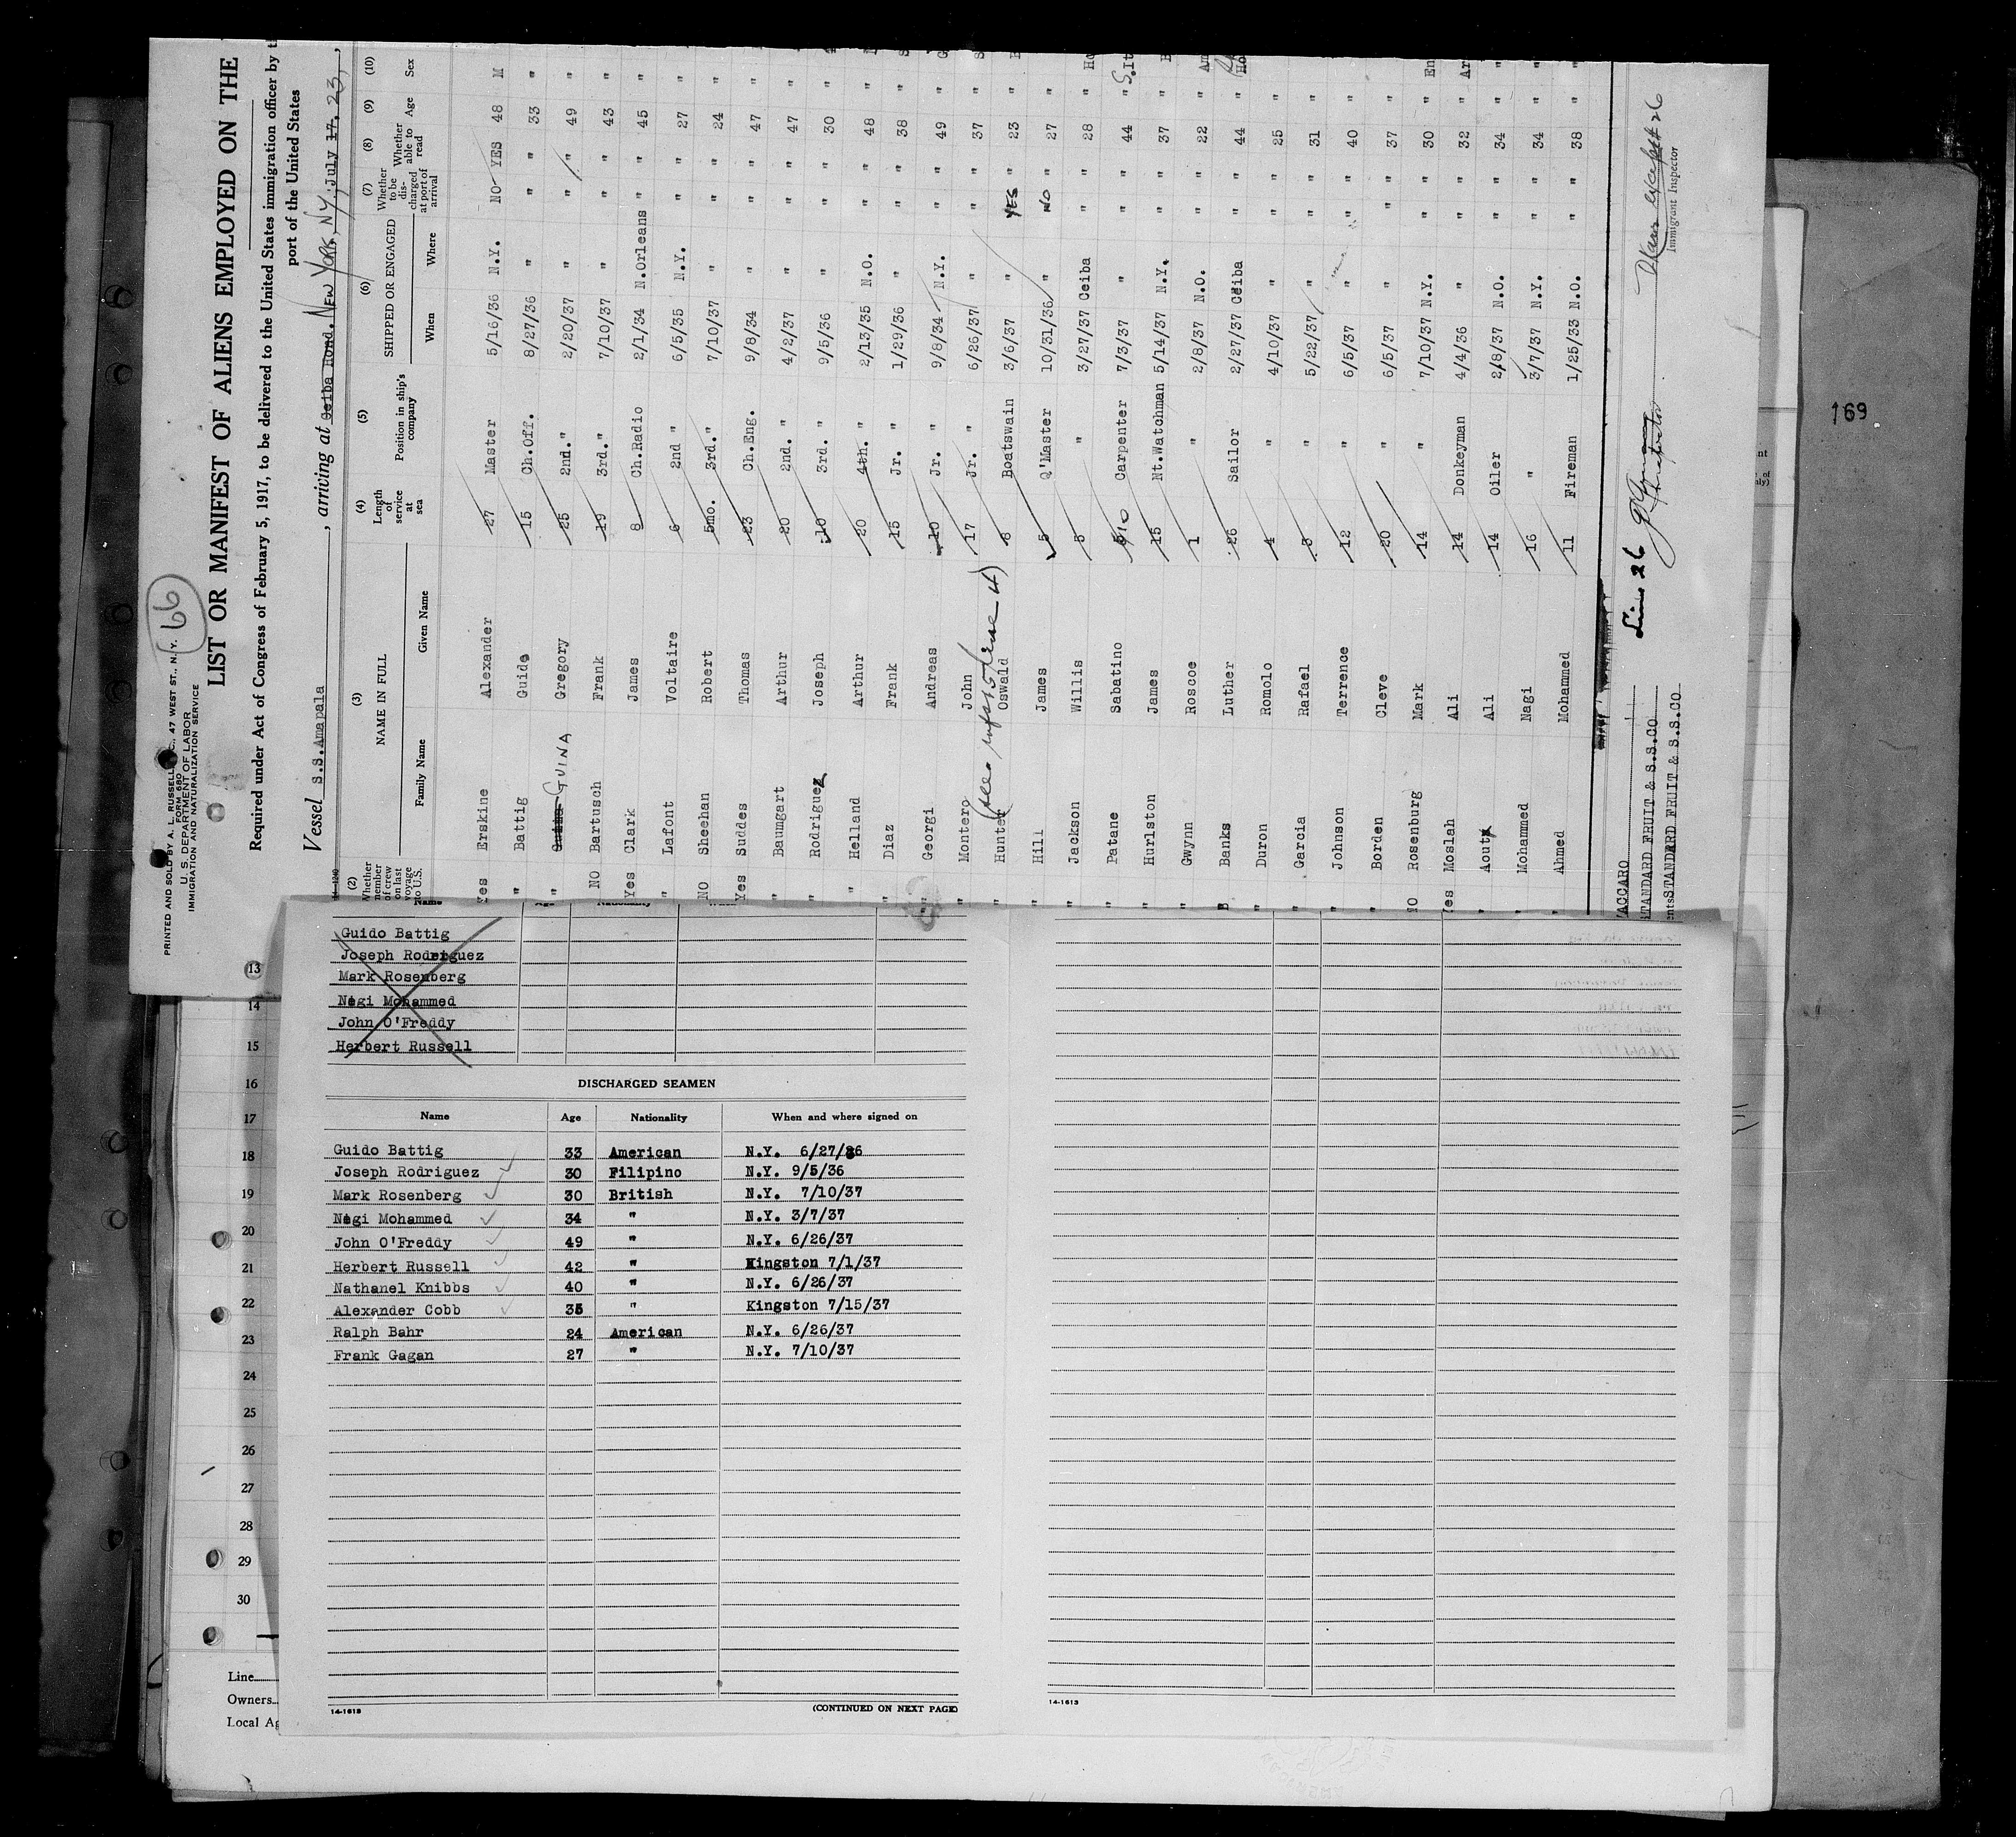 PRINTED AND SOLD BY A. L. RUSSELL, C., 47 WEST ST., N. Y.
66
FORM 680
U. S. DEPARTMENT OF LABOR
IMMIGRATION AND NATURALIZATION SERVICE
LIST OR MANIFEST OF ALIENS EMPLOYED ON THE
Required under Act of Congress of February 5, 1917, to be delivered to the United States immigration officer by t
port of the United States
Vessel S.S.Amapala, arriving at Ceiba Hond. New York, N.Y., July 17. 23,
(2) (3) (4) (5) (6) (7) (8) (9) (10)
Whether member of crew on last voyage to U.S. NAME IN FULL Length of service at sea Position in ship's company SHIPPED OR ENGAGED Whether to be discharged at port of arrival Whether able to read Age Sex
Family Name Given Name When Where
Yes Erskine Alexander 27 Master 5/16/36 N.Y. NO YES 48 M
" Battig Guido 15 Ch.Off. 8/27/36 " " " 33 "
" Guina Gregory 25 2nd." 2/20/37 " " " 49 "
NO Bartusch Frank 19 3rd." 7/10/37 " " " 43 "
Yes Clark James 8 Ch.Radio 2/1/34 N.Orleans " " 45 "
" Lafont Voltaire 6 2nd " 6/5/35 N.Y. " " 27 "
NO Sheehan Robert 5mo. 3rd." 7/10/37 " " " 24 "
Yes Suddes Thomas 23 Ch.Eng. 9/8/34 " " " 47 "
" Baumgart Arthur 20 2nd. " 4/2/37 " " " 47 "
" Rodriguez Joseph 10 3rd. " 9/5/36 " " " 30 "
" Helland Arthur 20 4th. " 2/13/35 N.O. " " 48 "
" Diaz Frank 15 Jr. " 1/29/36 " " " 38 "
" Georgi Andreas 10 Jr. " 9/8/34 N.Y. " " 49 "
" Montero John 17 Jr. " 6/26/37 " " " 37 "
" Hunter Oswald 6 Boatswain 3/6/37 " YES " 23 "
" Hill James 5 Q'Master 10/31/36 " NO " 27 "
" Jackson Willis 5 " 3/27/37 Ceiba " " 28 " Ho
" Patane Sabatino 10 Carpenter 7/3/37 " " " 44 " S.It
" Hurlston James 15 Nt.Watchman 5/14/37 N.Y. " " 37 "
" Gwynn Roscoe 1 " 2/8/37 N.O. " " 22 " Am
Banks Luther 26 Sailor 2/27/37 Ceiba " " 44 " Ho
" Duron Romolo 4 " 4/10/37 " " " 25 "
" Garcia Rafael 3 " 5/22/37 " " " 31 "
" Johnson Terrence 12 " 6/5/37 " " " 40 "
" Borden Cleve 20 " 6/5/37 " " " 37 "
NO Rosenburg Mark 14 " 7/10/37 N.Y. " " 30 " En
Yes Moslah Ali 14 Donkeyman 4/4/36 " " " 32 " Ar
" Aout Ali 14 Oiler 2/8/37 N.O. " " 34 " "
" Mohammed Nagi 16 " 3/7/37 N.Y. " " 34 " "
" Ahmed Mohammed 11 Fireman 1/25/33 N.O. " " 38 " "
Line 26
Immigrant Inspector
VACCARO
STANDARD FRUIT & S.S.CO
STANDARD FRUIT & S.S.CO
169
Guido Battig
Joseph Rodriguez
Mark Rosenberg
Nagi Mohammed
John O'Freddy
Herbert Russell
DISCHARGED SEAMEN
Name Age Nationality When and where signed on
Guido Battig 33 American N.Y. 6/27/36
Joseph Rodriguez 30 Filipino N.Y. 9/5/36
Mark Rosenberg 30 British N.Y. 7/10/37
Nagi Mohammed 34 " N.Y. 3/7/37
John O'Freddy 49 " N.Y. 6/26/37
Herbert Russell 42 " Kingston 7/1/37
Nathanel Knibbs 40 " N.Y. 6/26/37
Alexander Cobb 35 " Kingston 7/15/37
Ralph Bahr 24 American N.Y. 6/26/37
Frank Gagan 27 " N.Y. 7/10/37
14-1613
(CONTINUED ON NEXT PAGE)
14-1613
13
14
15
16
17
18
19
20
21
22
23
24
25
26
27
28
29
30
Line
Owners
Local Ag